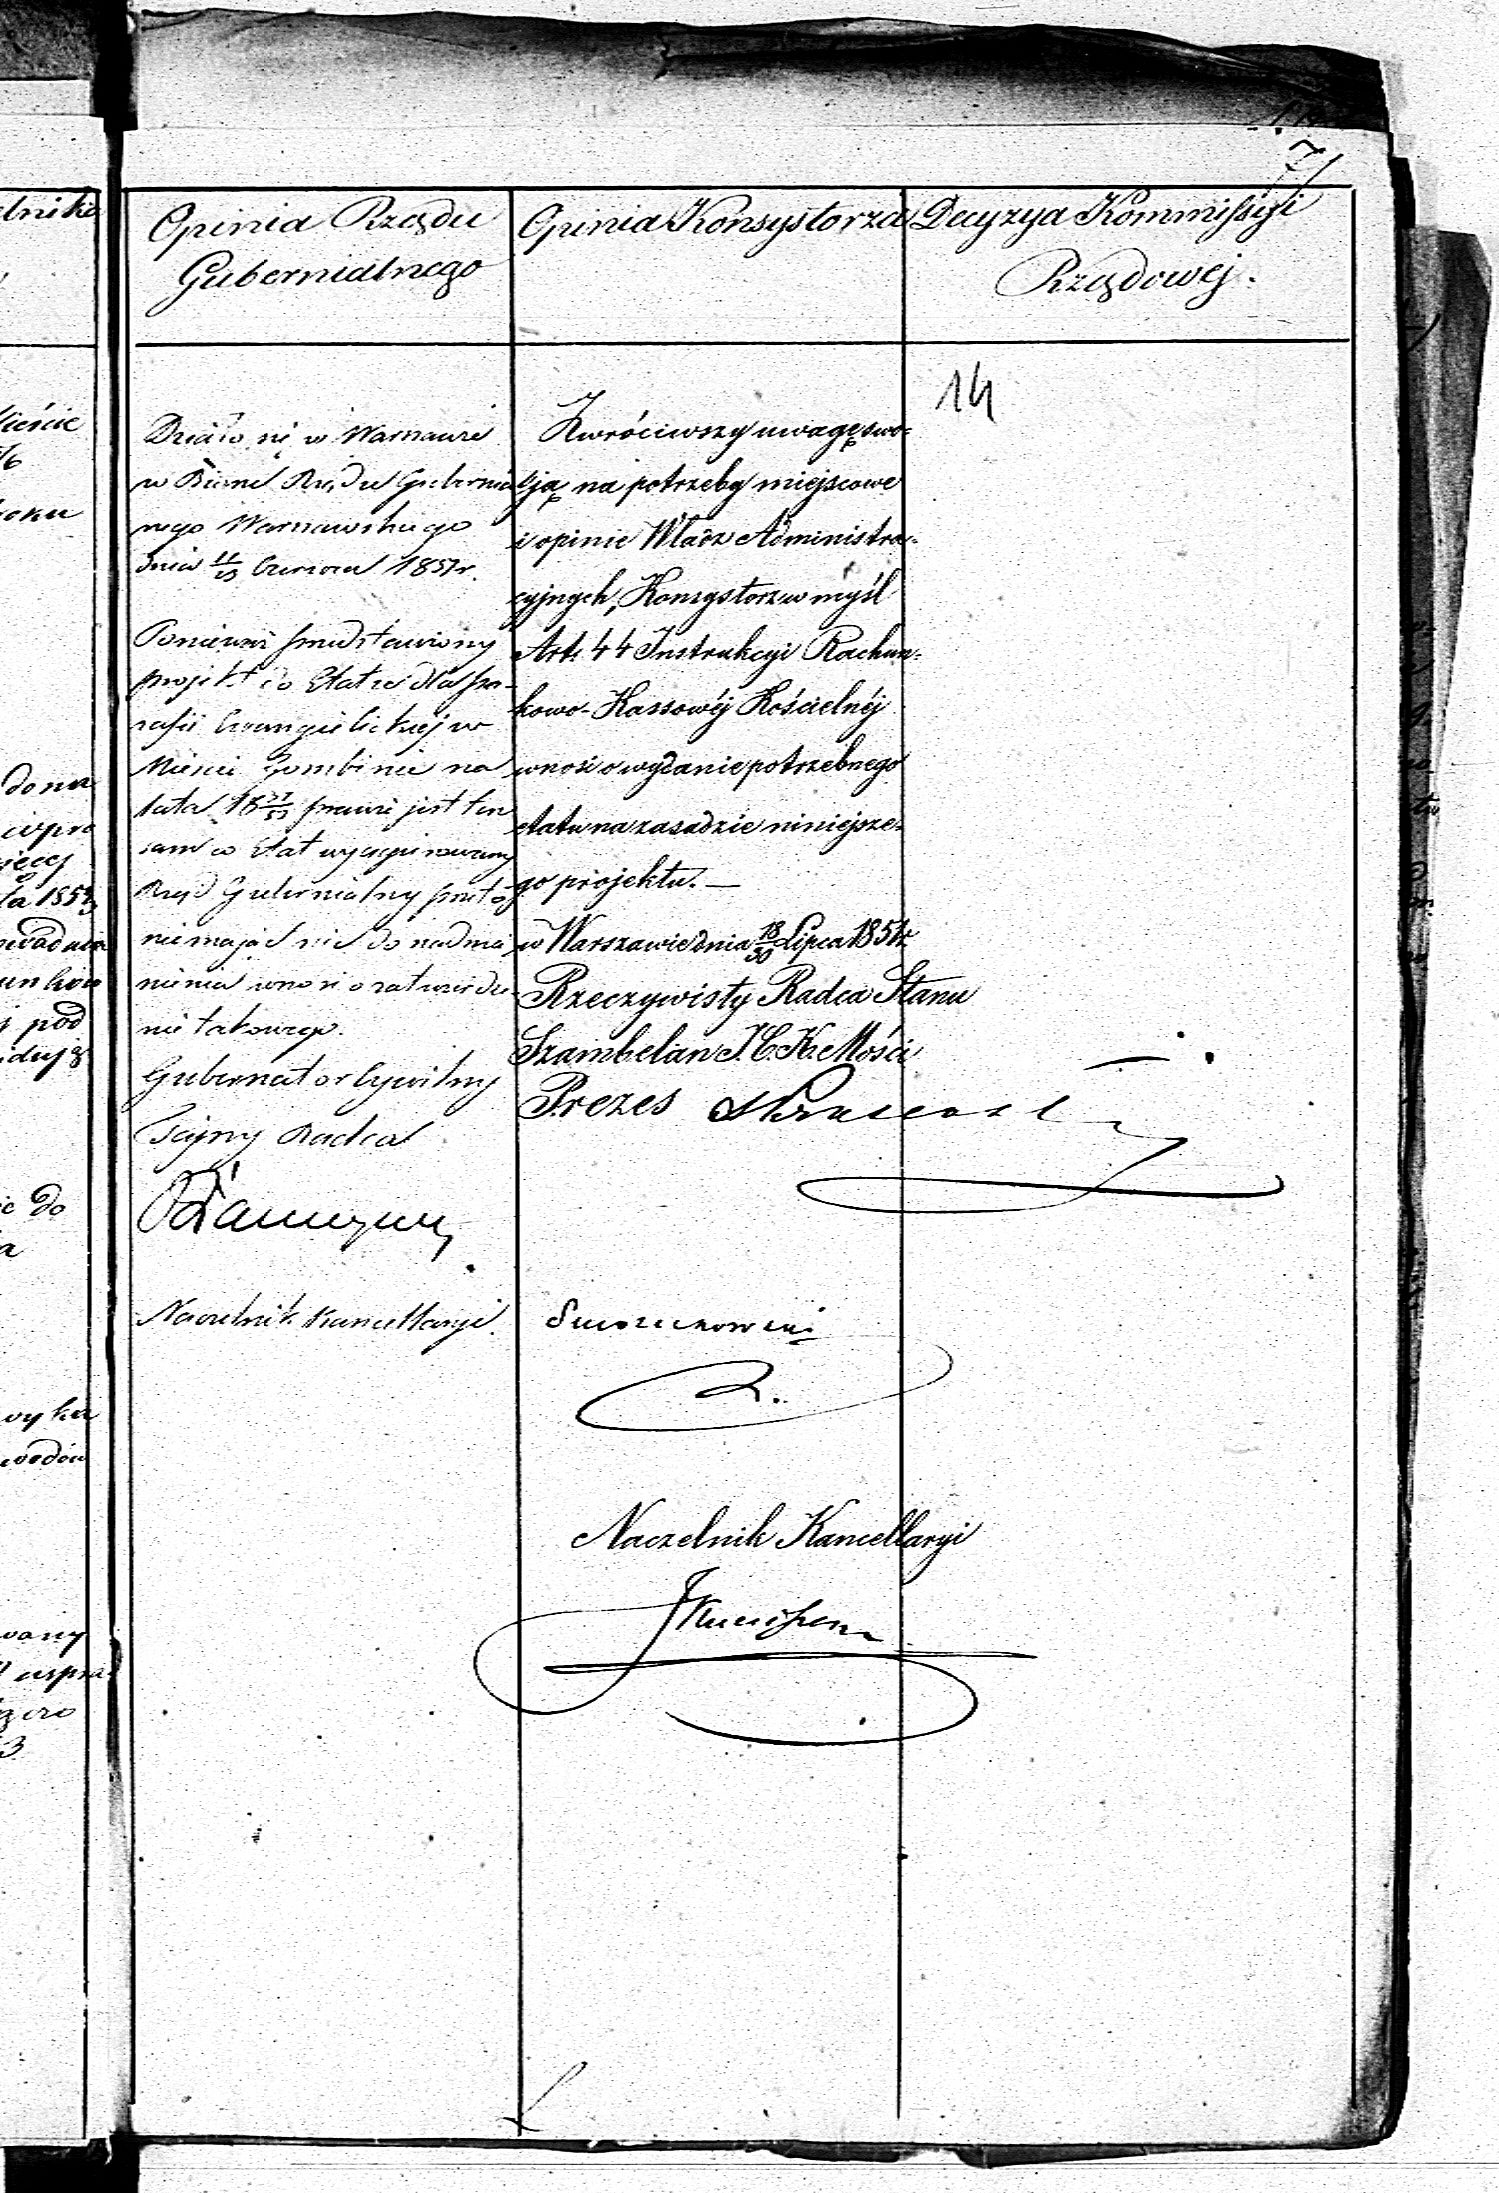 7
Opinia Rządu
Gubernialnego
Działo się w Warszawie
w Biórze Rządu Gubernial
nego Warszawskiego
dnia 11/23 Czerwca 1857 r.
Ponieważ przedstawiony
projekt do Etatu dla pa-
rafii Ewangielickiej w
Mieście Gombinie na
lata 18 prawie jest ten
sam co Etat wyexpirowany
Rząd Gubernialny przeto
niemając nic do nadmie
nienia wnosi o zatwierdze-
nie takowego.
Gubernator Cywilny
Tajny Radca
Naczelnik Kancellaryi
Opinia Konsystorza
Zwróciwszy uwagę swo-
ją na potrzeby miejscowe
i opinie Władz Administra-
cyjnych, Konsystorz w myśl
Art. 44 Instrukcyi Rachun-
kowo-Kassowéj Kościelnéj
wnosi o wydanie potrzebnego
etatu na zasadzie niniejsze-
go projektu. —
w Warszawie dnia 18/30 Lipca 1857 r.
Rzeczywisty Radca Stanu
Szambelan J. C. K. Mości
Prezes
Naczelnik Kancellaryi
Decyzya Kommissyi
Rządowej.
14